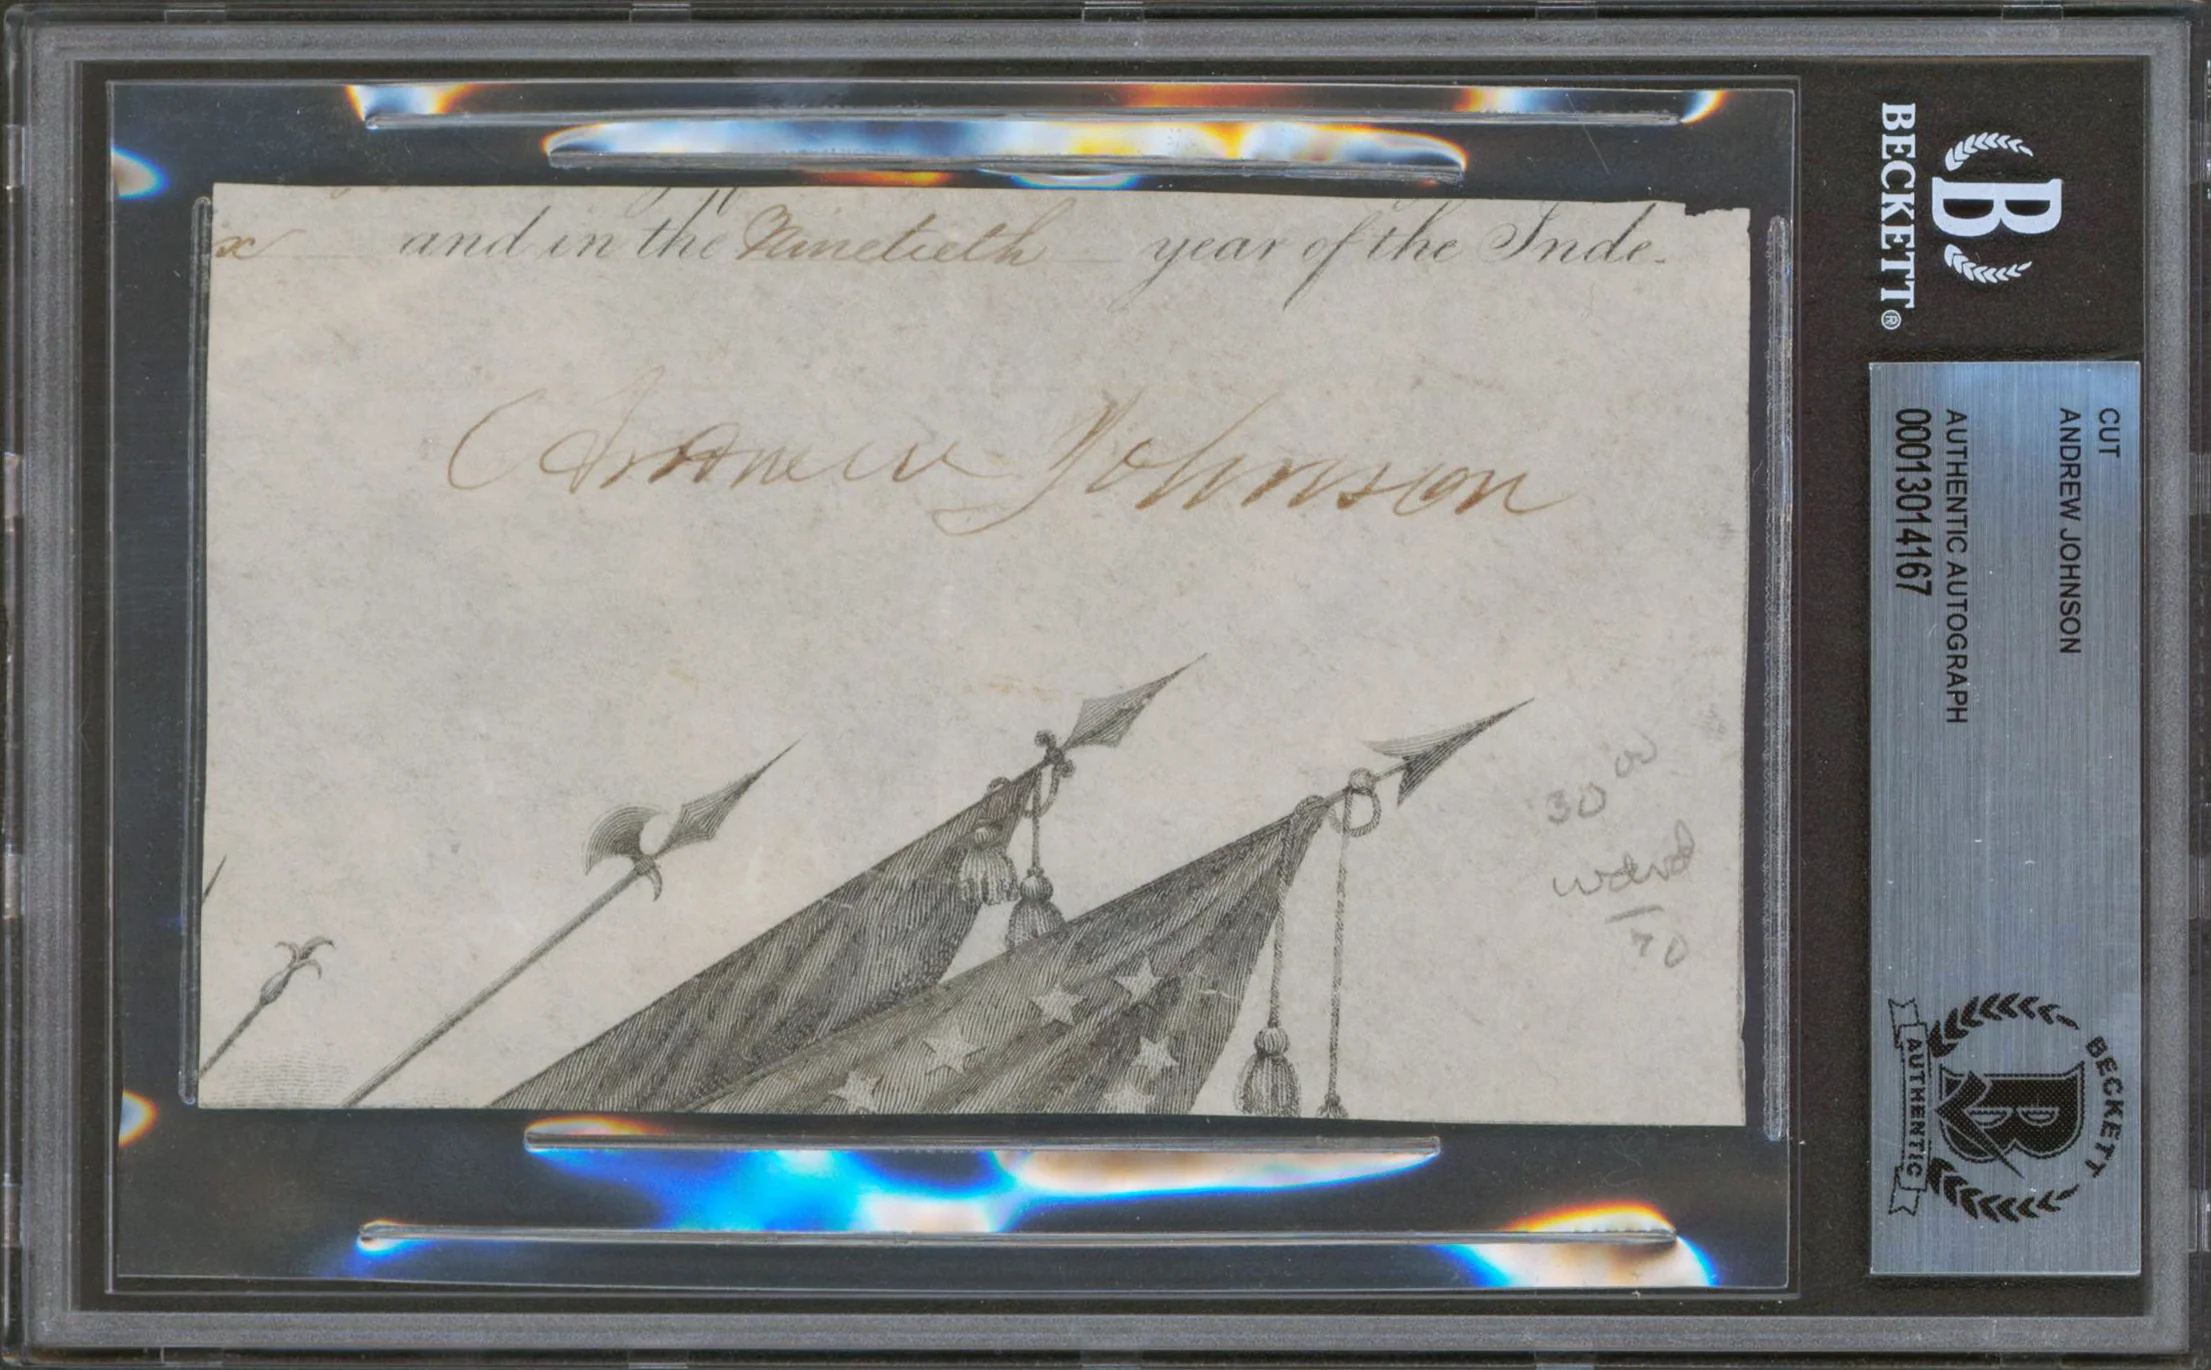 x and in the Ninetieth year of the Inde-
Andrew Johnson
30 00
70
B
BECKETT®
CUT
ANDREW JOHNSON
AUTHENTIC AUTOGRAPH
00013014167
BECKETT
B
AUTHENTIC